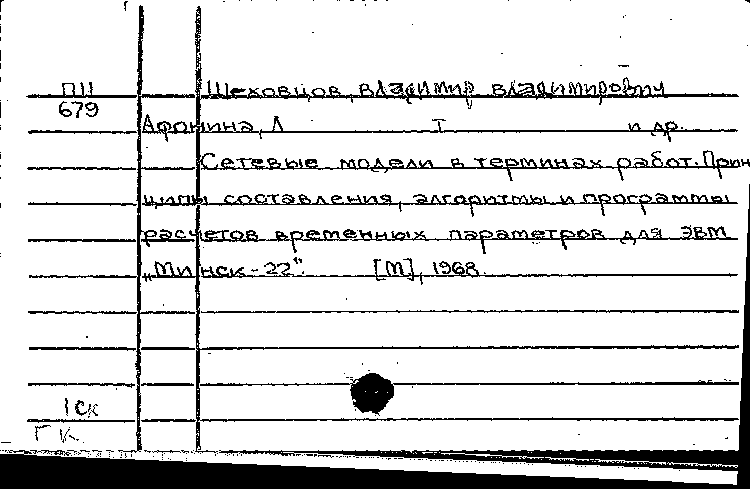 ПII Шеховцов, Владимир Владимирович
679
Афонина, Л Т и др.
Сетевые модели в терминах работ. Прин
ципы составления, алгоритмы и программы
расчетов временных параметров для ЭВМ
„Минск-22". [М], 1968.
1ск
ГК